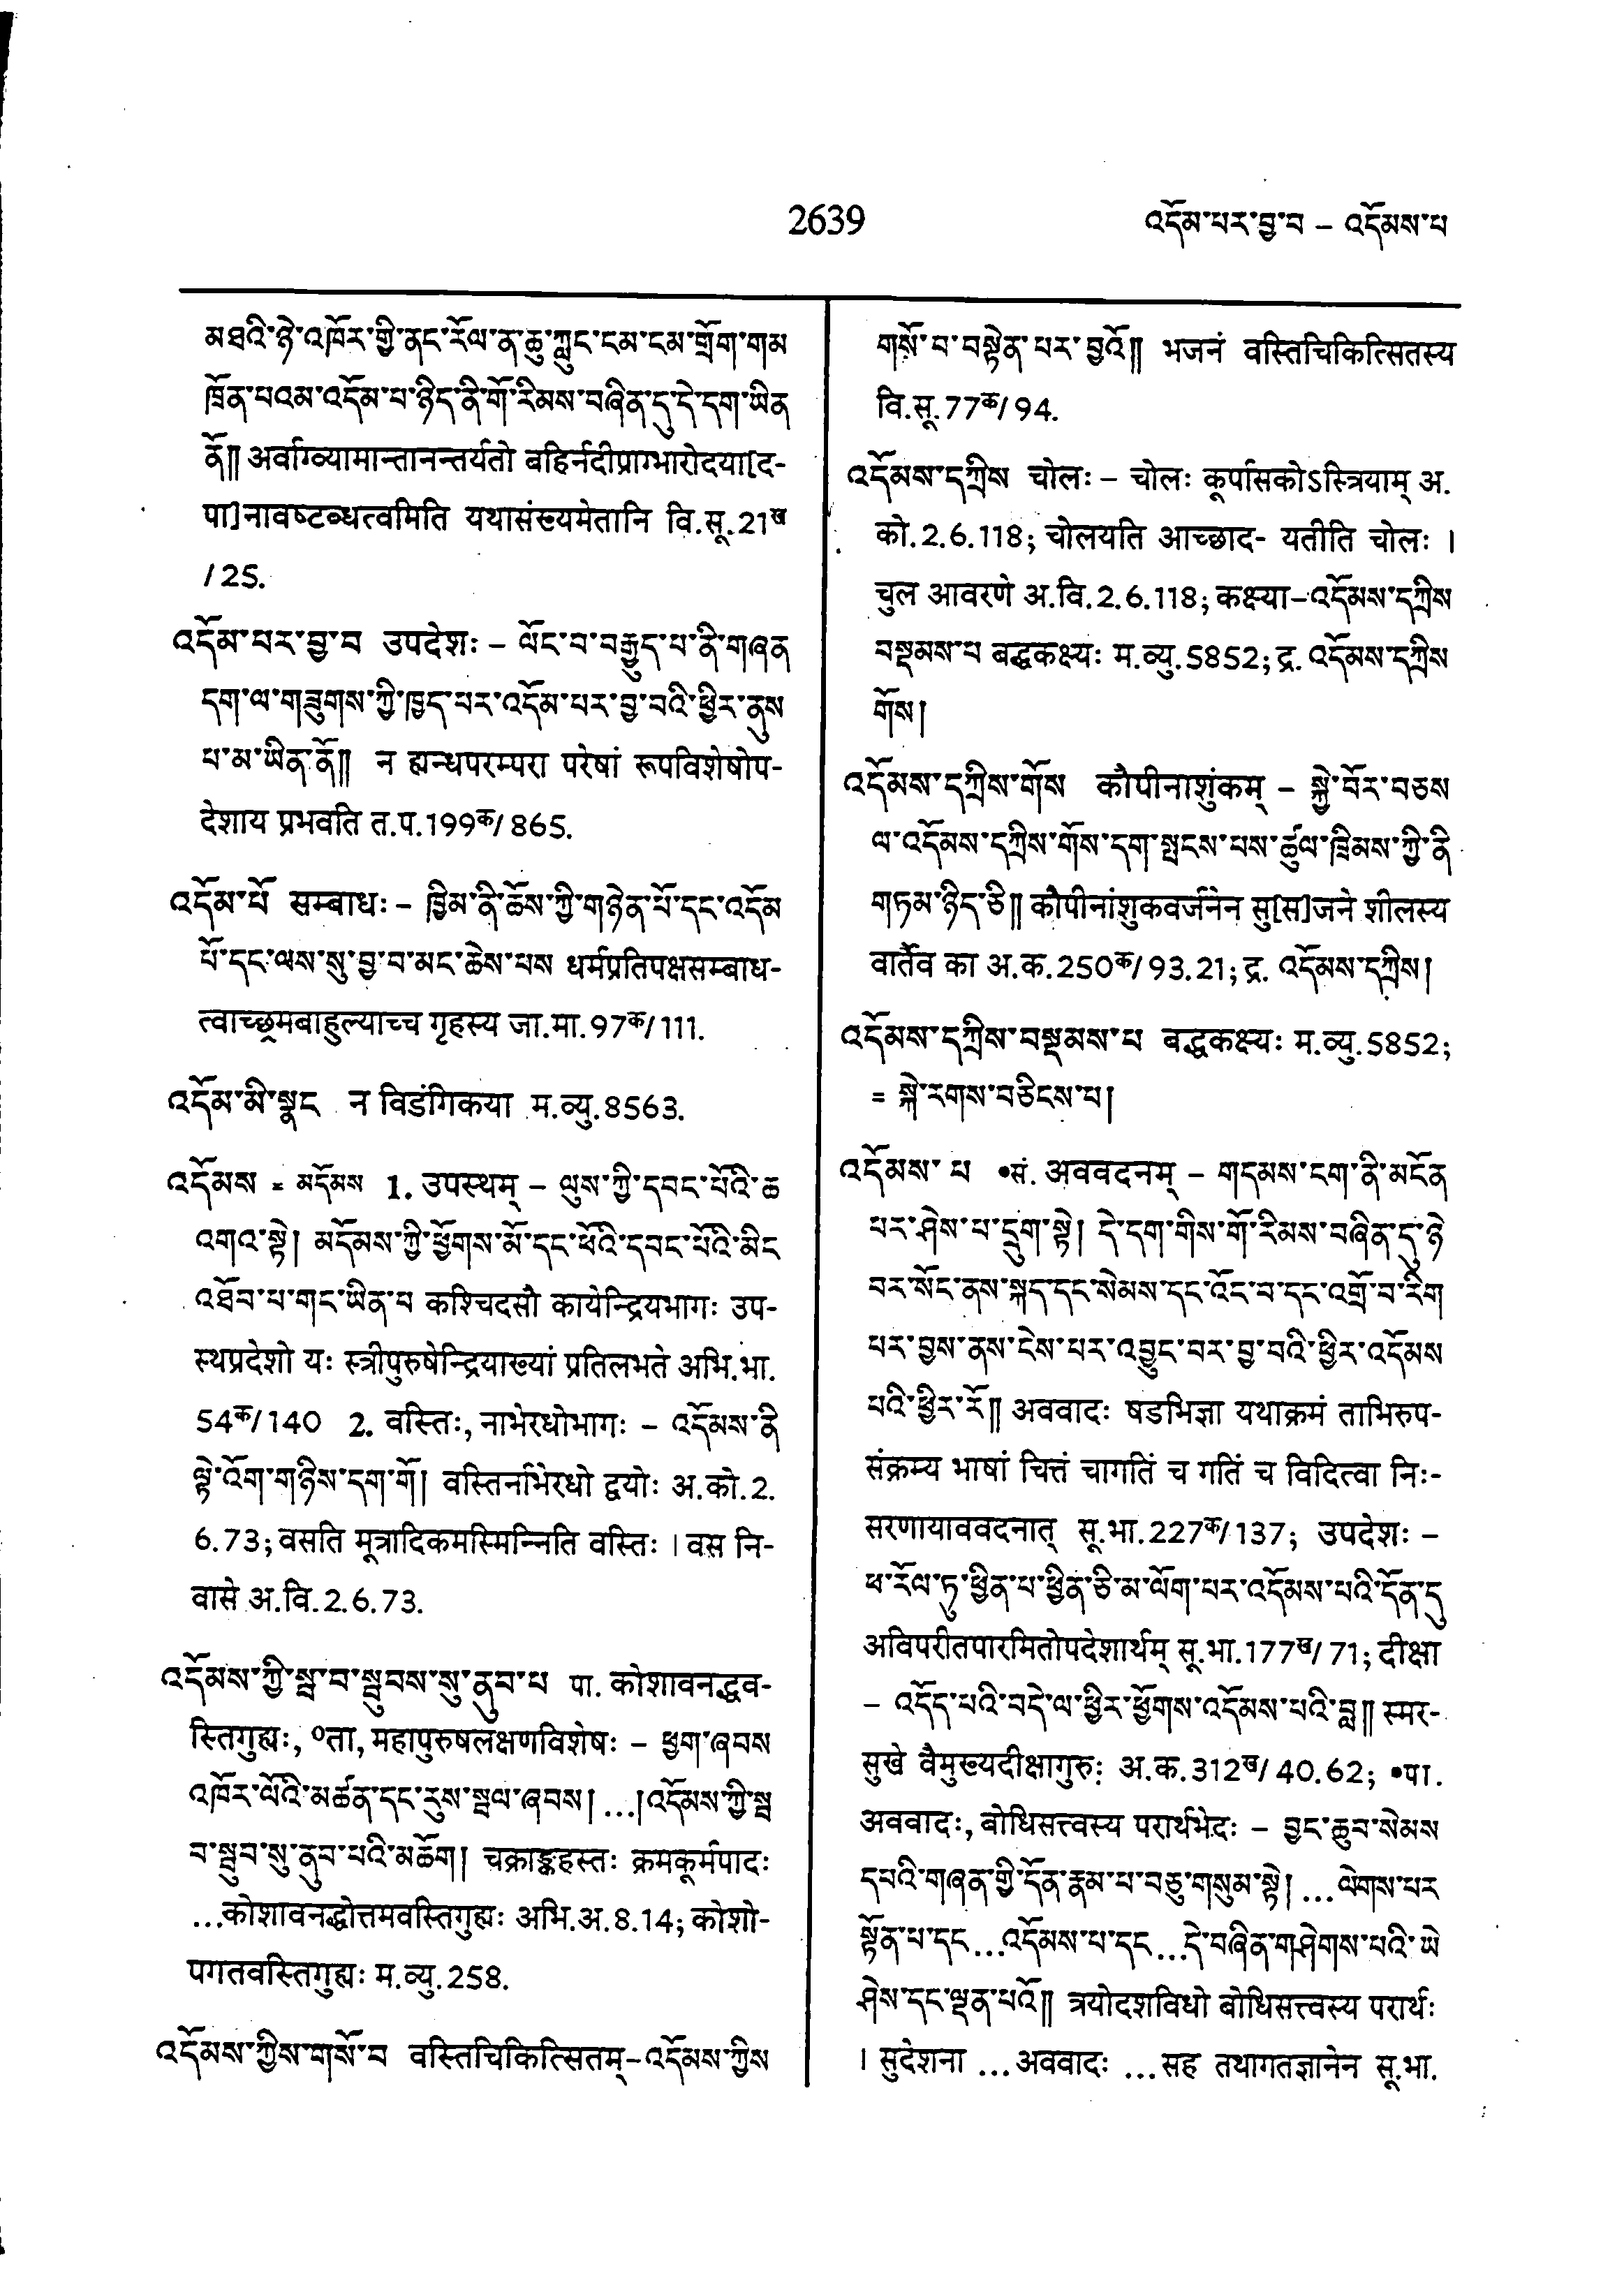 2639
འདོམ་པར་བྱ་བ – འདོམས་པ
མཐའི་ཉེ་འཁོར་གྱི་ནང་རོལ་ན་ཆུ་ཀླུང་ངམ་ངམ་གྲོག་གམ
ཁྲོན་པའམ་འདོམ་པ་ཉིད་ནི་གོ་རིམས་བཞིན་དུ་དེ་དག་ཡིན
ནོ༎ अर्वाग्व्यामान्तानन्तर्यतो बहिर्नदीप्राग्भारोदया[द-
पा]नावष्टब्धत्वमिति यथासंख्यमेतानि वि.सू.21ख
/25.
འདོམ་པར་བྱ་བ उपदेशः – ལོང་བ་བརྒྱུད་པ་ནི་གཞན
དག་ལ་གཟུགས་ཀྱི་ཁྱད་པར་འདོམ་པར་བྱ་བའི་ཕྱིར་ནུས
པ་མ་ཡིན་ནོ༎ न ह्यन्धपरम्परा परेषां रूपविशेषोप-
देशाय प्रभवति त.प.199क/865.
འདོམ་པོ सम्बाधः – ཁྱིམ་ནི་ཆོས་ཀྱི་གཉེན་པོ་དང་འདོམ
པོ་དང་ལས་སུ་བྱ་བ་མང་ཆེས་པས धर्मप्रतिपक्षसम्बाध-
त्वाच्छ्रमबाहुल्याच्च गृहस्य जा.मा.97क/111.
འདོམ་མི་སྣང न विडंगिकया म.व्यु.8563.
འདོམས = མདོམས 1. उपस्थम् – ལུས་ཀྱི་དབང་པོའི་ཆ
འགའ་སྟེ། མདོམས་ཀྱི་ཕྱོགས་མོ་དང་ཕོའི་དབང་པོའི་མིང
འཐོབ་པ་གང་ཡིན་པ कश्चिदसौ कायेन्द्रियभागः उप-
स्थप्रदेशो यः स्त्रीपुरुषेन्द्रियाख्यां प्रतिलभते अभि.भा.
54क/140 2. वस्तिः, नाभेरधोभागः – འདོམས་ནི
ལྟེ་འོག་གཉིས་དག་གོ། वस्तिर्नाभेरधो द्वयोः अ.को.2.
6.73; वसति मूत्रादिकमस्मिन्निति वस्तिः । वस नि-
वासे अ.वि.2.6.73.
འདོམས་ཀྱི་སྦ་བ་སྦུབས་སུ་ནུབ་པ पा. कोशावनद्धव-
स्तिगुह्यः, ०ता, महापुरुषलक्षणविशेषः – ཕྱག་ཞབས
འཁོར་ལོའི་མཚན་དང་རུས་སྦལ་ཞབས། ...།འདོམས་ཀྱི་སྦ
བ་སྦུབ་སུ་ནུབ་པའི་མཆོག། चक्राङ्कहस्तः क्रमकूर्मपादः
...कोशावनद्धोत्तमवस्तिगुह्यः अभि.अ.8.14; कोशो-
पगतवस्तिगुह्यः म.व्यु.258.
འདོམས་ཀྱིས་གསོ་བ वस्तिचिकित्सितम्–འདོམས་ཀྱིས
གསོ་བ་བསྟེན་པར་བྱའོ༎ भजनं वस्तिचिकित्सितस्य
वि.सू.77क/94.
འདོམས་དཀྲིས चोलः – चोलः कूर्पासकोऽस्त्रियाम् अ.
को.2.6.118; चोलयति आच्छाद- यतीति चोलः ।
चुल आवरणे अ.वि.2.6.118; कक्ष्या–འདོམས་དཀྲིས
བསྡམས་པ बद्धकक्ष्यः म.व्यु.5852; द्र. འདོམས་དཀྲིས
གོས།
འདོམས་དཀྲིས་གོས कौपीनाशुंकम् – སྐྱེ་བོར་བཅས
ལ་འདོམས་དཀྲིས་གོས་དག་སྤངས་པས་ཚུལ་ཁྲིམས་ཀྱི་ནི
གཏམ་ཉིད་ཅི༎ कौपीनांशुकवर्जनेन सु[स]जने शीलस्य
वार्तैव का अ.क.250क/93.21; द्र. འདོམས་དཀྲིས།
འདོམས་དཀྲིས་བསྡམས་པ बद्धकक्ष्यः म.व्यु.5852;
= སྐེ་རགས་བཅིངས་པ།
འདོམས་པ •सं. अववदनम् – གདམས་ངག་ནི་མངོན
པར་ཤེས་པ་དྲུག་སྟེ། དེ་དག་གིས་གོ་རིམས་བཞིན་དུ་ཉེ
བར་སོང་ནས་སྐད་དང་སེམས་དང་འོང་བ་དང་འགྲོ་བ་རིག
པར་བྱས་ནས་ངེས་པར་འབྱུང་བར་བྱ་བའི་ཕྱིར་འདོམས
པའི་ཕྱིར་རོ༎ अववादः षडभिज्ञा यथाक्रमं ताभिरुप-
संक्रम्य भाषां चित्तं चागतिं च गतिं च विदित्वा निः-
सरणायाववदनात् सू.भा.227क/137; उपदेशः –
ཕ་རོལ་ཏུ་ཕྱིན་པ་ཕྱིན་ཅི་མ་ལོག་པར་འདོམས་པའི་དོན་དུ
अविपरीतपारमितोपदेशार्थम् सू.भा.177ख/71; दीक्षा
– འདོད་པའི་བདེ་ལ་ཕྱིར་ཕྱོགས་འདོམས་པའི་བླ༎ स्मर-
सुखे वैमुख्यदीक्षागुरुः अ.क.312ख/40.62; •पा.
अववादः, बोधिसत्त्वस्य परार्थभेदः – བྱང་ཆུབ་སེམས
དཔའི་གཞན་གྱི་དོན་རྣམ་པ་བཅུ་གསུམ་སྟེ། ...ལེགས་པར
སྟོན་པ་དང...འདོམས་པ་དང...དེ་བཞིན་གཤེགས་པའི་ཡེ
ཤེས་དང་ལྡན་པའོ༎ त्रयोदशविधो बोधिसत्त्वस्य परार्थः
। सुदेशना ...अववादः ...सह तथागतज्ञानेन सू.भा.